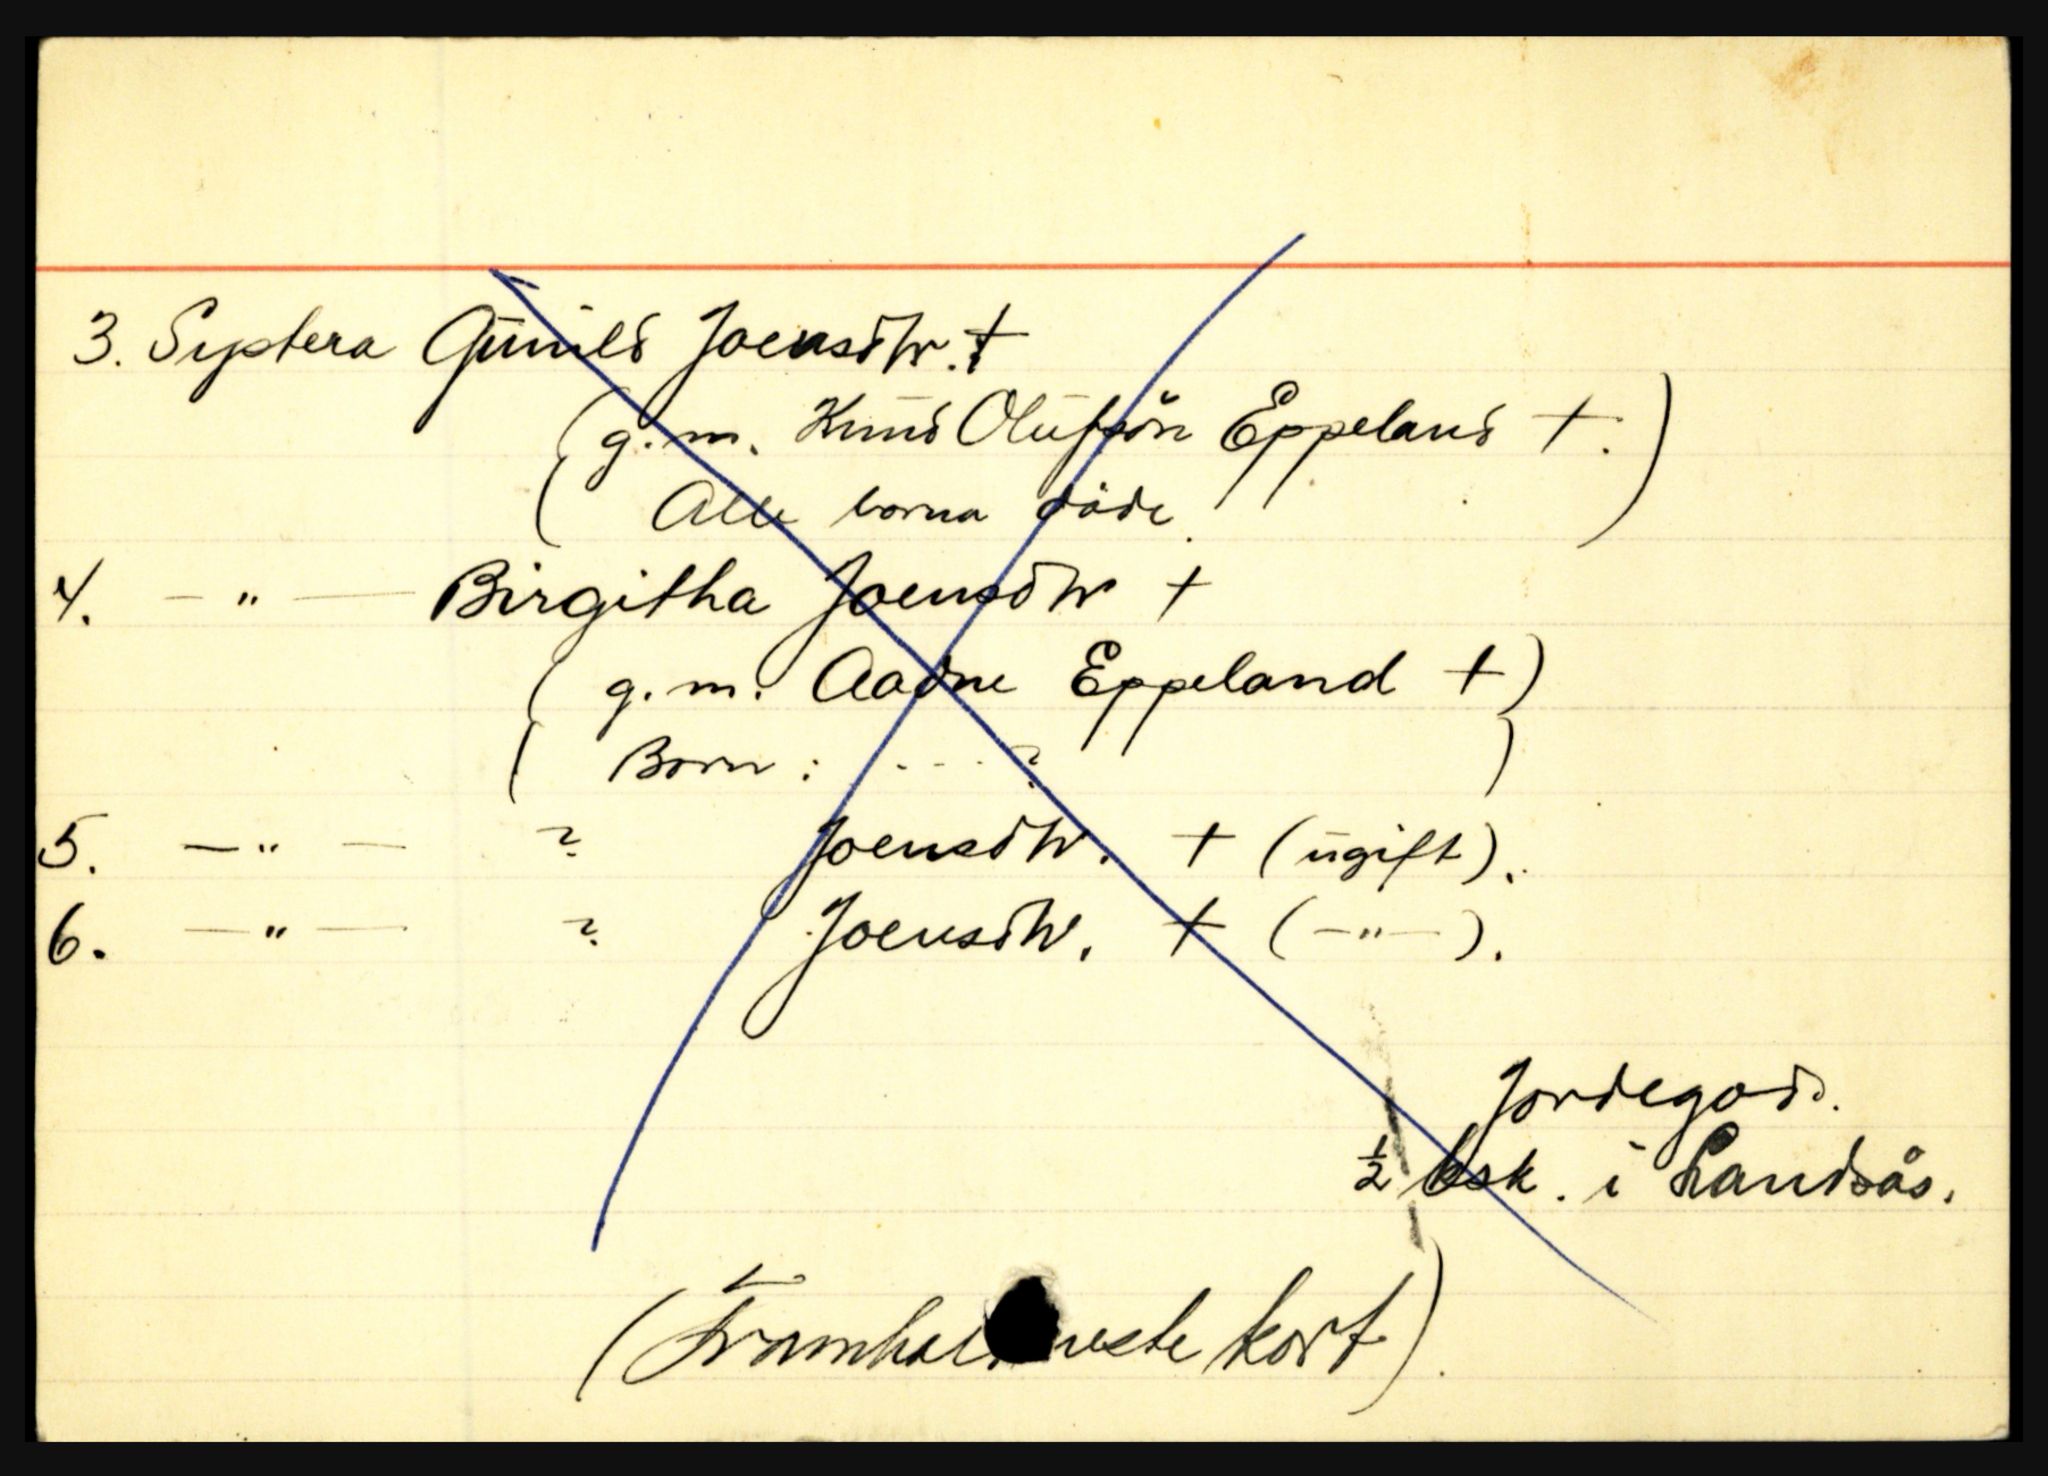 3. Systera Gunild Joensdtr. †
(g.m. Knud Olufsön Eppeland †.)
( Alle borna döde.
4. — " — Birgitha Joensdtr †
( g.m. Aadne Eppeland † )
( Born : - - - ? )
5. — " — ? Joensdtr. † (ugift).
6. — " — ? Joensdtr. † (—"—).
Jordegods.
½ bsk. i Landsås.
(Framhald neste kort).